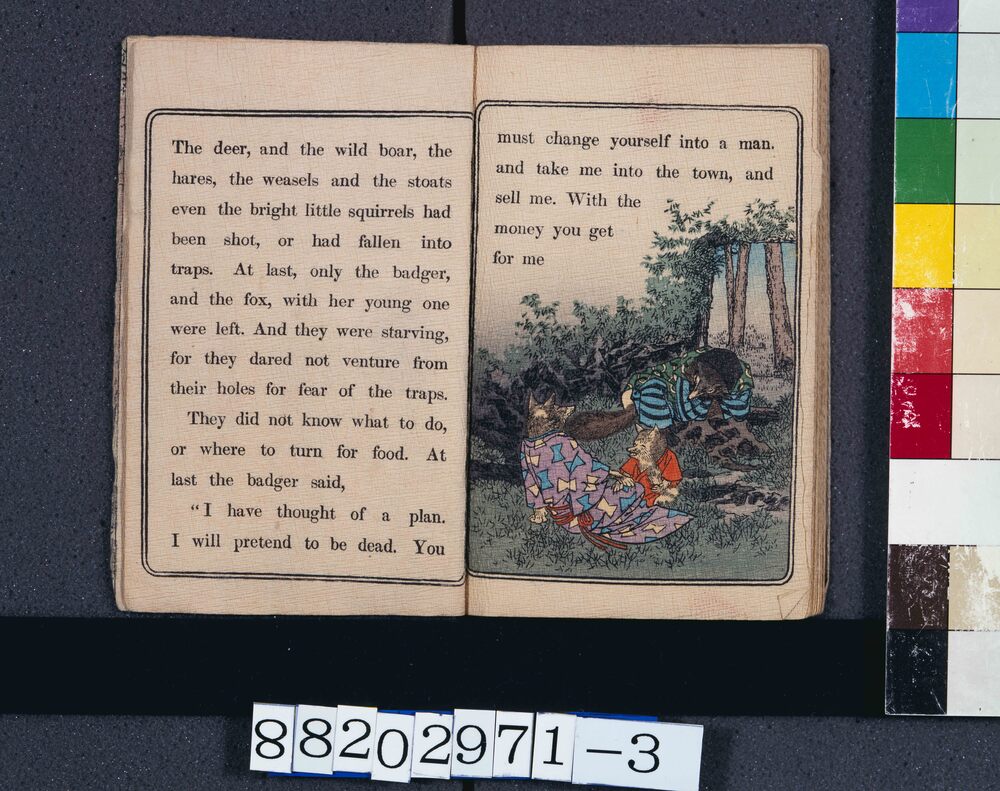 The deer, and the wild boar, the
hares, the weasels and the stoats
even the bright little squirrels had
been shot, or had fallen into
traps. At last, only the badger,
and the fox, with her young one
were left. And they were starving,
for they dared not venture from
their holes for fear of the traps.
They did not know what to do,
or where to turn for food. At
last the badger said,
"I have thought of a plan.
I will pretend to be dead. You
must change yourself into a man.
and take me into the town, and
sell me. With the
money you get
for me
88202971-3